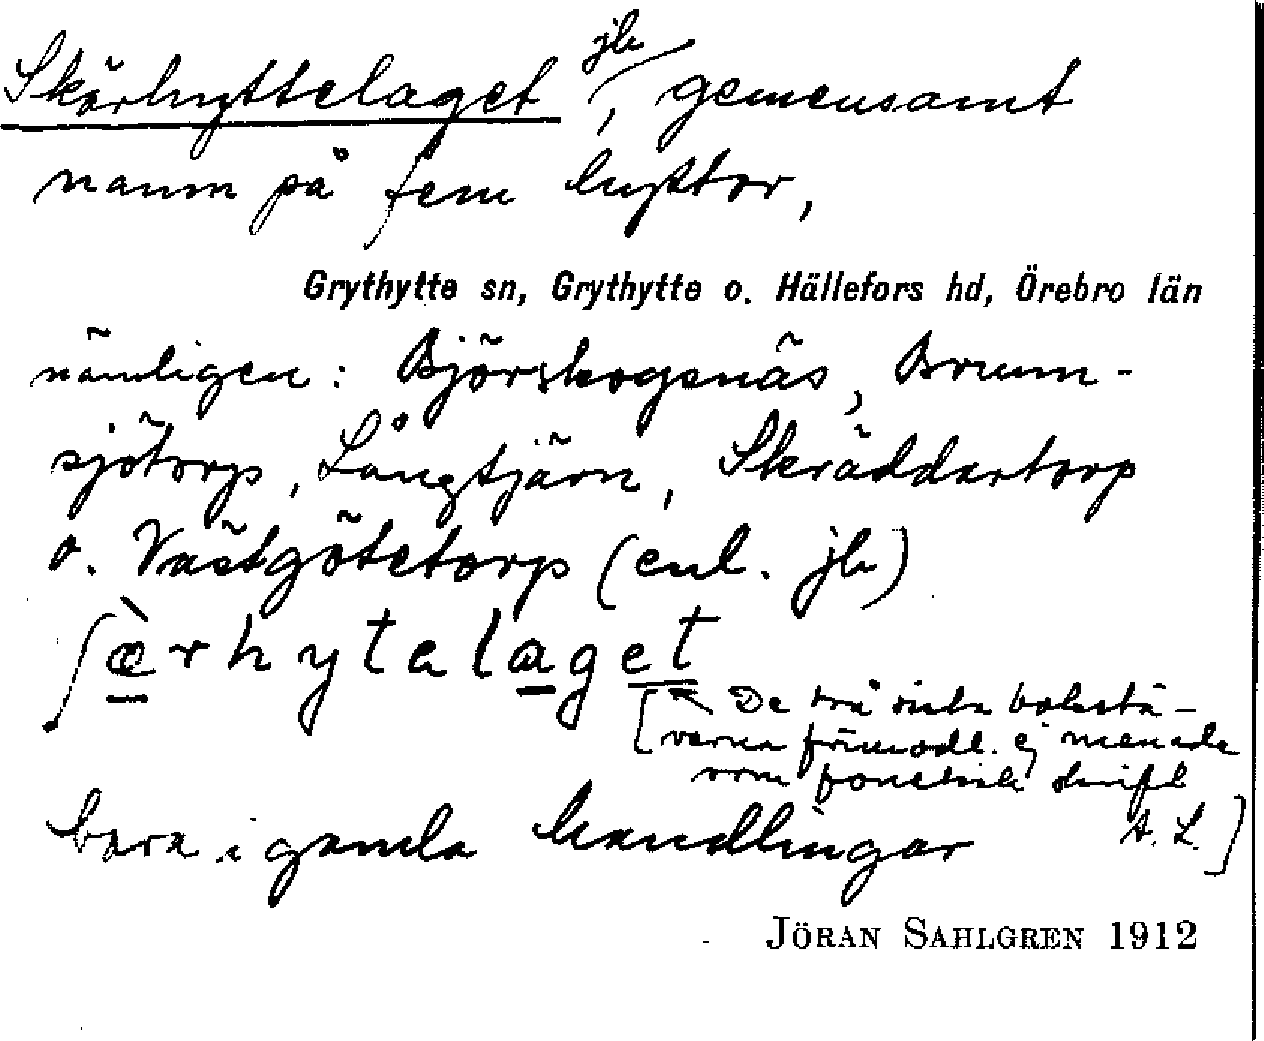 Skärhyttelaget jb, gemensamt
namn på fem hyttor,
Grythytte sn, Grythytte o. Hällefors hd, Örebro län
nämligen: Björskogsnäs, Brum-
sjötorp, Långtjärn, Skräddartorp
o. Västgötetorp (enl. jb)
ʃæ̀rhytelaget
[De två sista bokstä-
verna förmodl. ej menade
som fonetisk skrift
bara i gamla handlingar A.L.]
JÖRAN SAHLGREN 1912